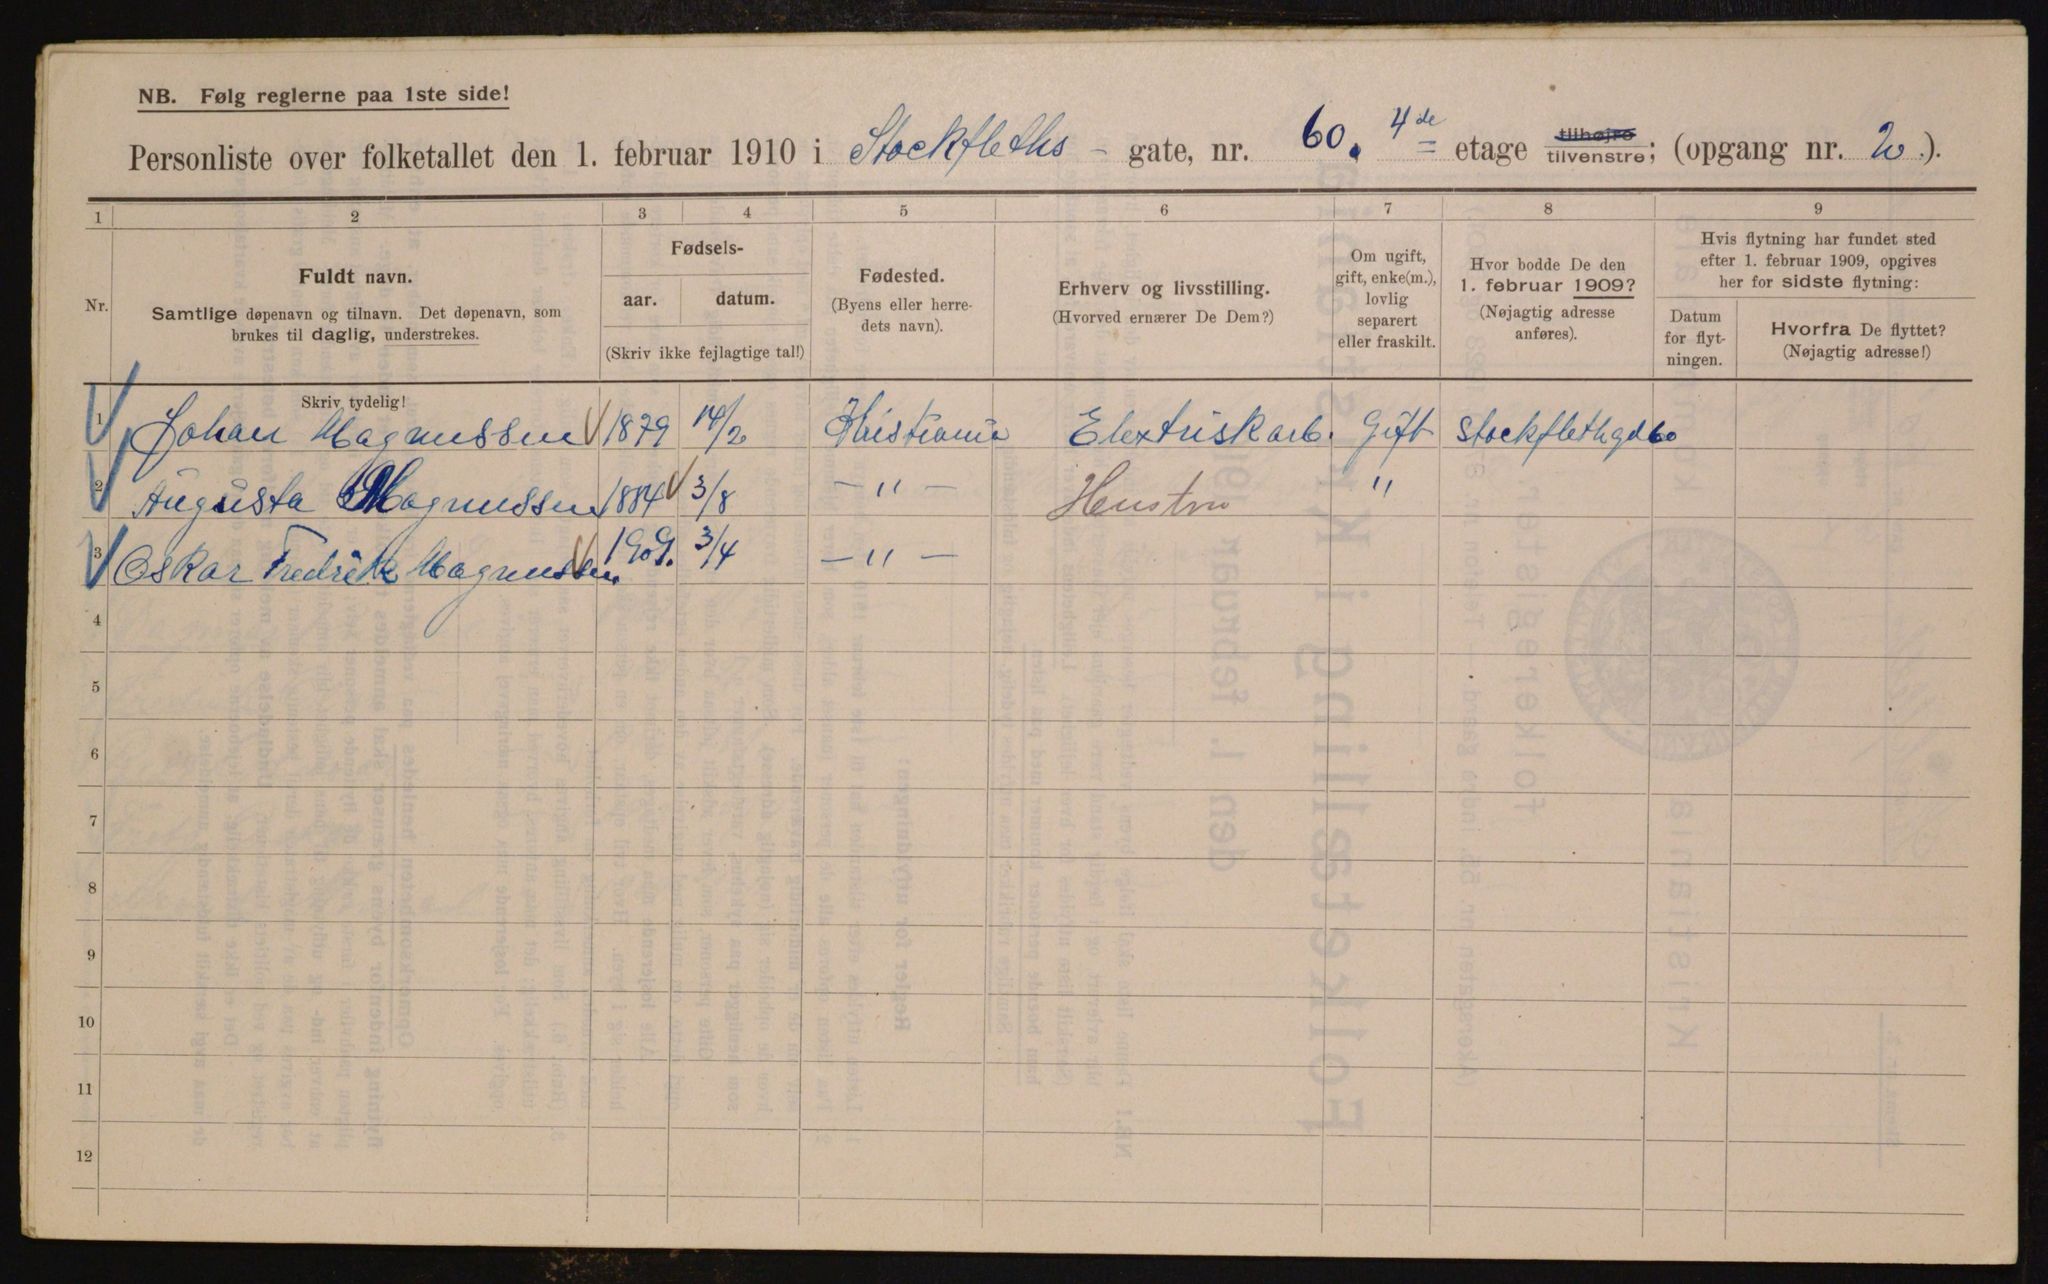 NB. Følg reglerne paa 1ste side!
Personliste over folketallet den 1. februar 1910 i Stockfleths - gate, nr. 60. 4de etage tilhøjre tilvenstre; (opgang nr. 2.).
1 2 3 4 5 6 7 8 9
Nr.
Fuldt navn.
Samtlige døpenavn og tilnavn. Det døpenavn, som
brukes til daglig, understrekes.
Fødsels-
aar. datum.
(Skriv ikke fejlagtige tal!)
Fødested.
(Byens eller herre-
dets navn).
Erhverv og livsstilling.
(Hvorved ernærer De Dem?)
Om ugift,
gift, enke(m.),
lovlig
separert
eller fraskilt.
Hvor bodde De den
1. februar 1909?
(Nøjagtig adresse
anføres).
Hvis flytning har fundet sted
efter 1. februar 1909, opgives
her for sidste flytning:
Datum
for flyt-
ningen.
Hvorfra De flyttet?
(Nøjagtig adresse!)
Skriv tydelig!
1 Johan Magnussen 1879 14/2 Kristiania Elextriskarb. Gift Stockflethgd 60
2 Augusta Magnussen 1884 3/8 — " — Hustru "
3 Oskar Fredrik Magnussen. 1909. 3/4 — " —
4
5
6
7
8
9
10
11
12